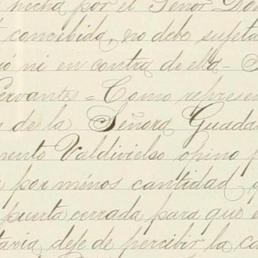 hecha por el Señor Don
concebida, no debo sujeta
ni en contra de ella =
Cervantes = Como represen
de la Señora Guada
mento Valdivielso opino p
por ménos cantidad q
puerta cerrada para que e
taria, deje de percibir la ca